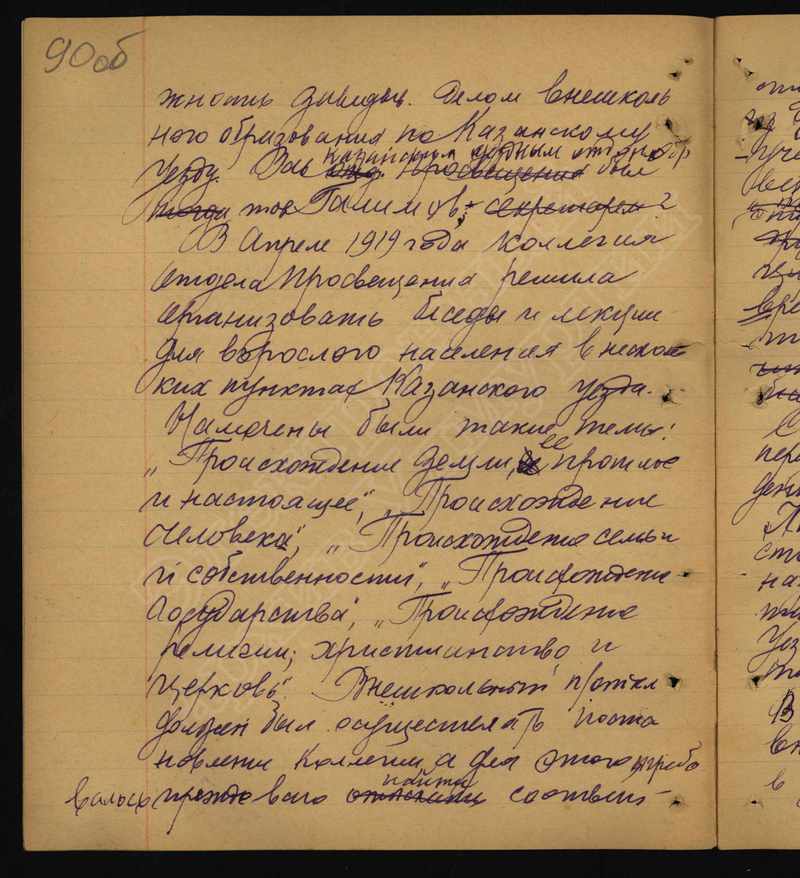 90об
жность заведыв. делом внешколь
ного образования по Казанскому
уезду. Зав Казанским уездным отд. нар
отд. просвещения был
тогда тов Галимов, секретарем
В Апреле 1919 года Коллегия
отдела Просвещения решила
организовать беседы и лекции
для взрослого населения в несколь
ких пунктах Казанского уезда.
Намечены были такие темы:
„Происхождение Земли, ее прошлое
и настоящее", „Происхождение
человека", „Происхождение семьи
и собственности", „Происхождение
государства", „Происхождение
религии, христианство и
церковь". Внешкольный п/отдел
должен был осуществлять поста
новление Коллегии, а для этого потребо
валось прежде всего найти отыскать соответ-